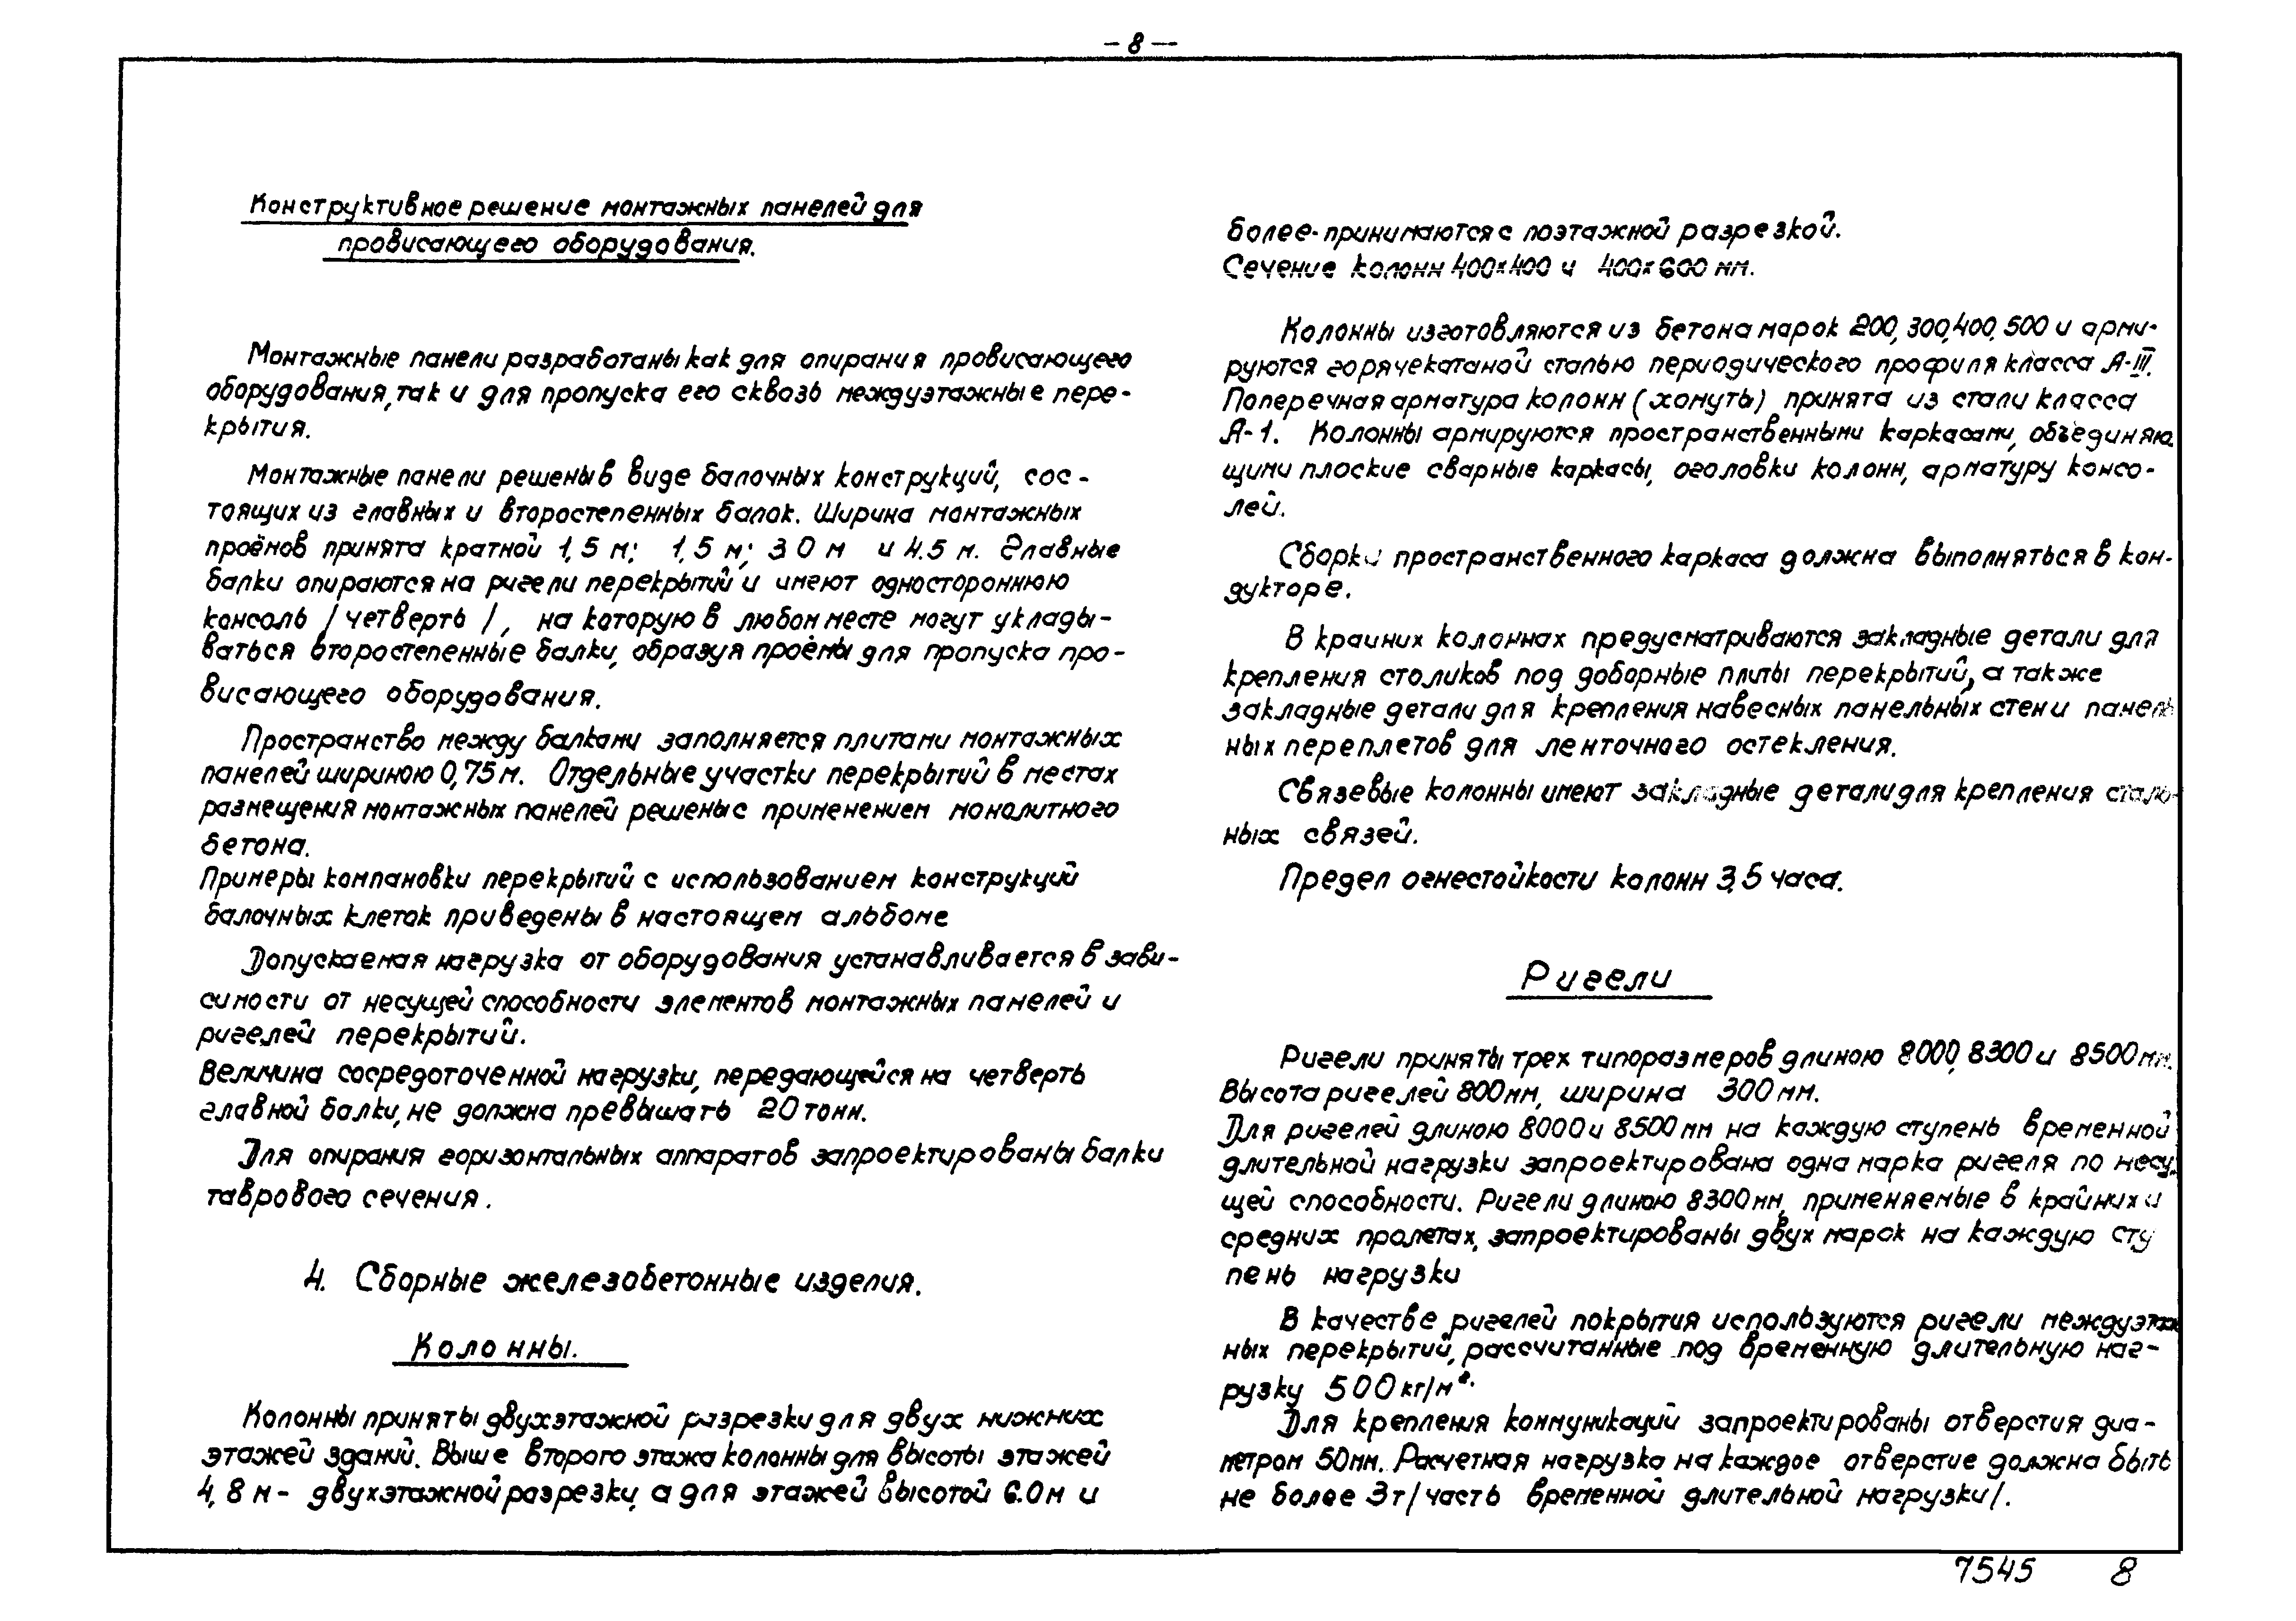 - 8 -
Конструктивное решение монтажных панелей для
провисающего оборудования.
Монтажные панели разработаны как для опирания провисающего
оборудования, так и для пропуска его сквозь междуэтажные пере-
крытия.
Монтажные панели решены в виде балочных конструкций, сос-
тоящих из главных и второстепенных балок. Ширина монтажных
проёмов принята кратной 1,5 м: 1,5 м; 3.0 м и 4.5 м. Главные
балки опираются на ригели перекрытий и имеют одностороннюю
консоль /четверть/, на которую в любом месте могут уклады-
ваться второстепенные балки, образуя проёмы для пропуска про-
висающего оборудования.
Пространство между балками заполняется плитами монтажных
панелей шириною 0,75 м. Отдельные участки перекрытий в местах
размещения монтажных панелей решены с применением монолитного
бетона.
Примеры компановки перекрытий с использованием конструкций
балочных клеток приведены в настоящем альбоме
Допускаемая нагрузка от оборудования устанавливается в зави-
симости от несущей способности элементов монтажных панелей и
ригелей перекрытий.
Величина сосредоточенной нагрузки, передающейся на четверть
главной балки, не должна превышать 20 тонн.
Для опирания горизонтальных аппаратов запроектированы балки
таврового сечения.
4. Сборные железобетонные изделия.
Колонны.
Колонны приняты двухэтажной разрезки для двух нижних
этажей зданий. Выше второго этажа колонны для высоты этажей
4,8 м - двухэтажной разрезки, а для этажей высотой 6.0 м и
более - принимаются с поэтажной разрезкой.
Сечение колонн 400×400 и 400×600 мм.
Колонны изготовляются из бетона марок 200, 300, 400, 500 и арми-
руются горячекатаной сталью периодического профиля класса А-III.
Поперечная арматура колонн (хомуты) принята из стали класса
А-1. Колонны армируются пространственными каркасами, объединяю
щими плоские сварные каркасы, оголовки колонн, арматуру консо-
лей.
Сборка пространственного каркаса должна выполняться в кон-
дукторе.
В крайних колоннах предусматриваются закладные детали для
крепления столиков под доборные плиты перекрытий, а также
закладные детали для крепления навесных панельных стен и панель
ных переплетов для ленточного остекления.
Связевые колонны имеют закладные детали для крепления сталь-
ных связей.
Предел огнестойкости колонн 3,5 часа.
Ригели
Ригели приняты трех типоразмеров длиною 8000, 8300 и 8500 мм.
Высота ригелей 800 мм, ширина 300 мм.
Для ригелей длиною 8000 и 8500 мм на каждую ступень временной
длительной нагрузки запроектирована одна марка ригеля по несу-
щей способности. Ригели длиною 8300 мм, применяемые в крайних и
средних пролетах, запроектированы двух марок на каждую сту
пень нагрузки
В качестве ригелей покрытия используются ригели междуэтаж
ных перекрытий, рассчитанные под временную длительную наг-
рузку 500 кг/м².
Для крепления коммуникаций запроектированы отверстия диа-
метром 50 мм. Расчетная нагрузка на каждое отверстие должна быть
не более 3 т /часть временной длительной нагрузки/.
7545 8